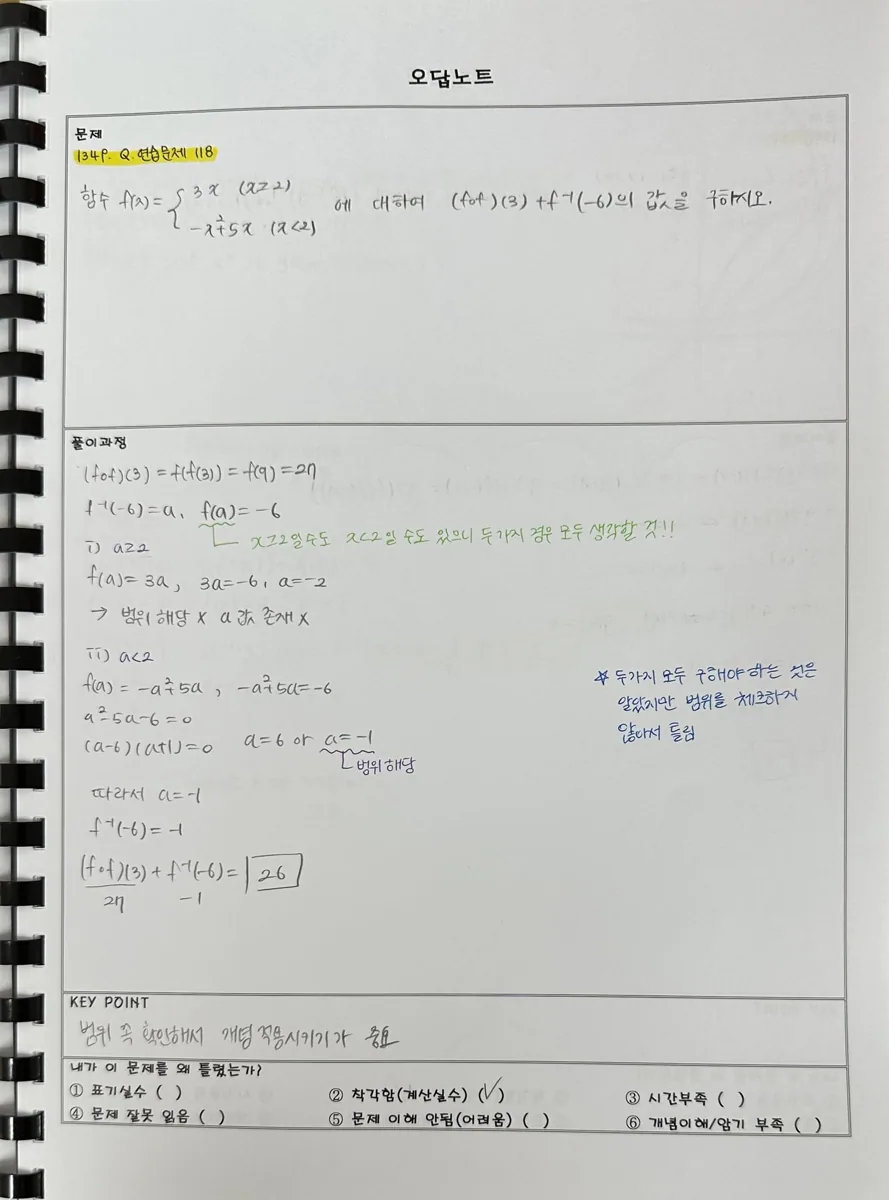 오답노트
문제
134P. Q. 연습문제 118
함수 f(x)= { 3x (x≥2) 에 대하여 (f∘f)(3)+f⁻¹(-6)의 값을 구하시오.
-x²+5x (x<2)
풀이과정
(f∘f)(3) = f(f(3)) = f(9) = 27
f⁻¹(-6)=a, f(a)=-6
x≥2일수도 x<2일 수도 있으니 두가지 경우 모두 생각할 것!!
i) a≥2
f(a)=3a, 3a=-6, a=-2
→ 범위 해당 X a 값 존재 X
ii) a<2
f(a) = -a²+5a, -a²+5a=-6
a²-5a-6=0
(a-6)(a+1)=0 a=6 or a=-1
범위 해당
☆ 두가지 모두 구해야 하는 것은
알았지만 범위를 체크하지
않아서 틀림
따라서 a=-1
f⁻¹(-6)=-1
(f∘f)(3)+f⁻¹(-6)= 26
27 -1
KEY POINT
범위 꼭 확인해서 개념 적용시키기가 중요
내가 이 문제를 왜 틀렸는가?
① 표기실수 ( ) ② 착각함(계산실수) (✓) ③ 시간부족 ( )
④ 문제 잘못 읽음 ( ) ⑤ 문제 이해 안됨(어려움) ( ) ⑥ 개념이해/암기 부족 ( )